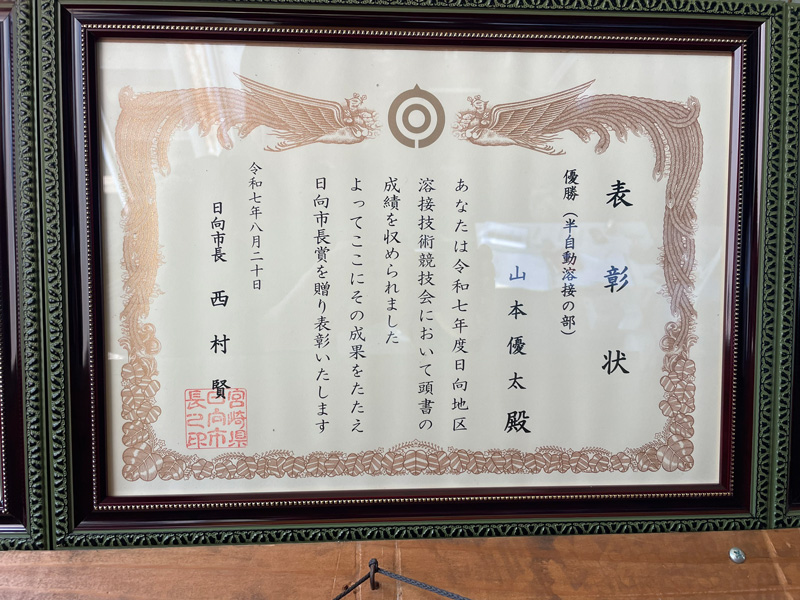 表彰状
優勝（半自動溶接の部）
山本優太殿
あなたは令和七年度日向地区
溶接技術競技会において頭書の
成績を収められました
よってここにその成果をたたえ
日向市長賞を贈り表彰いたします
令和七年八月二十日
日向市長 西村賢
宮崎県
日向市
長之印